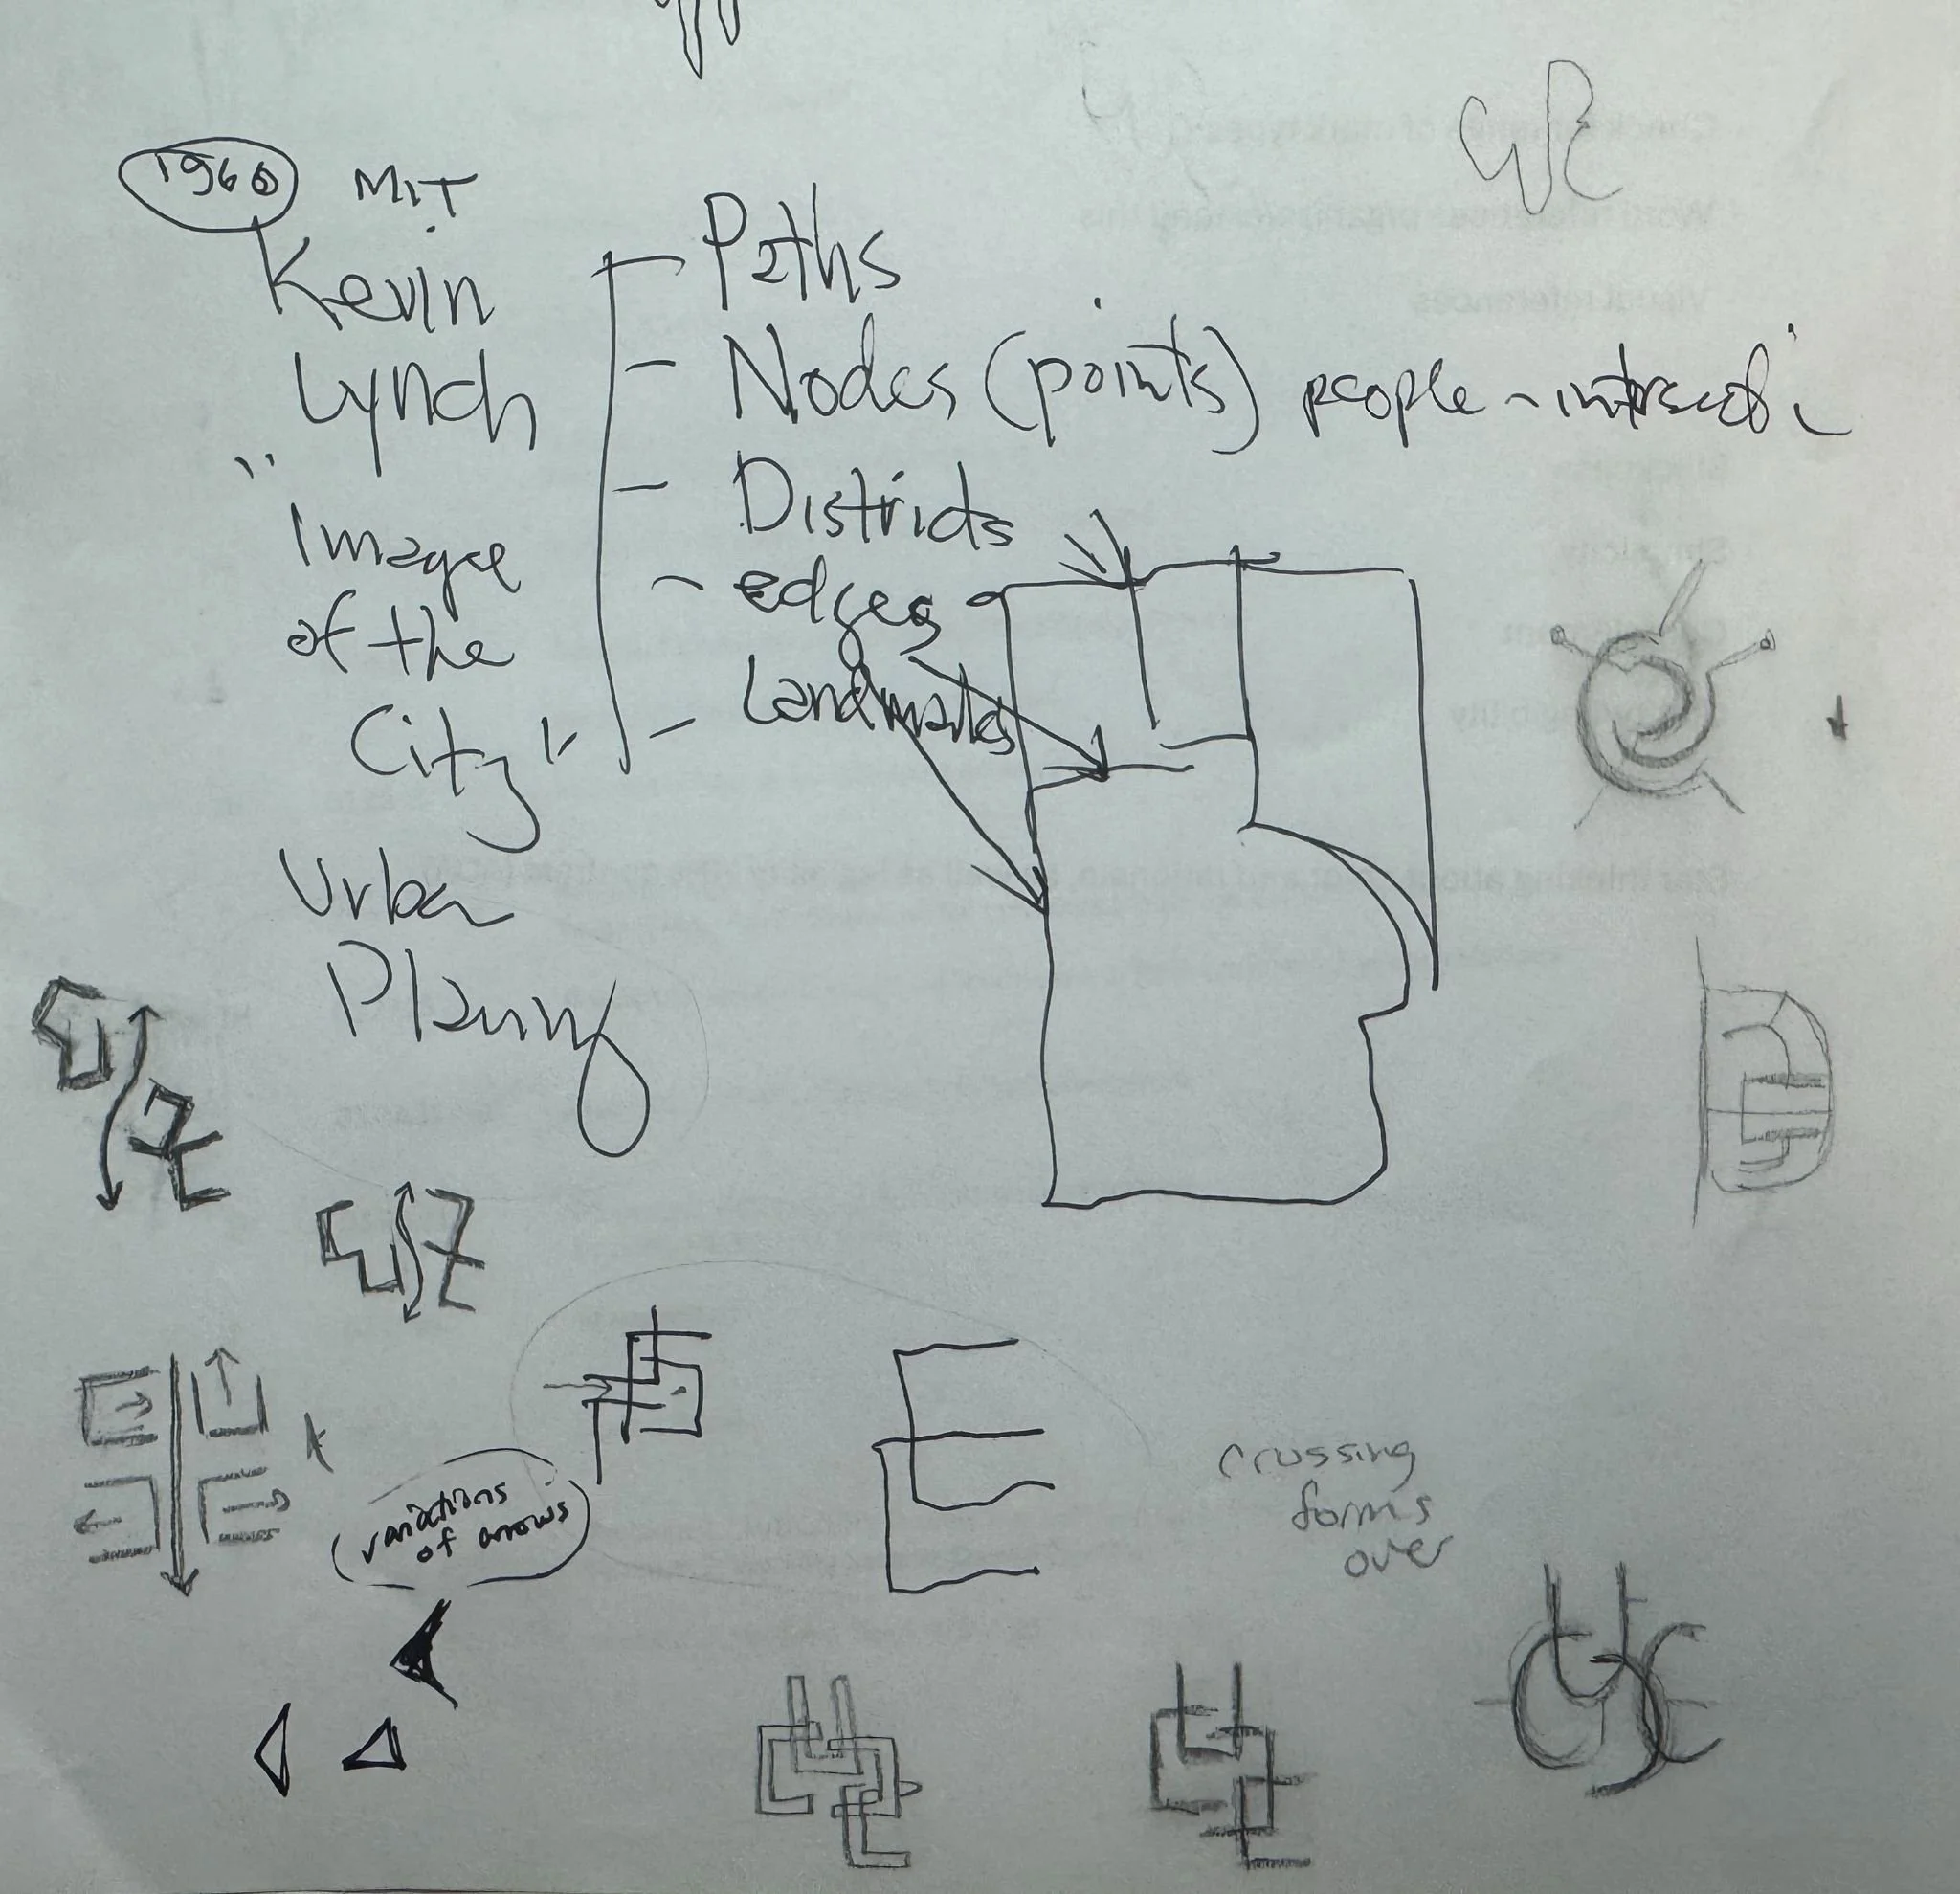 1960 MIT
Kevin
Lynch
"Image
of the
City"
Urban
Planning
Paths
Nodes (points) people - intersect
Districts
edges
Landmarks
variations
of arrows
crossing
forms
over